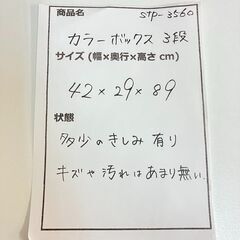 商品名 STP-3560
カラーボックス 3段
サイズ (幅×奥行×高さ cm)
42×29×89
状態
多少のきしみ 有り
キズや汚れはあまり無い